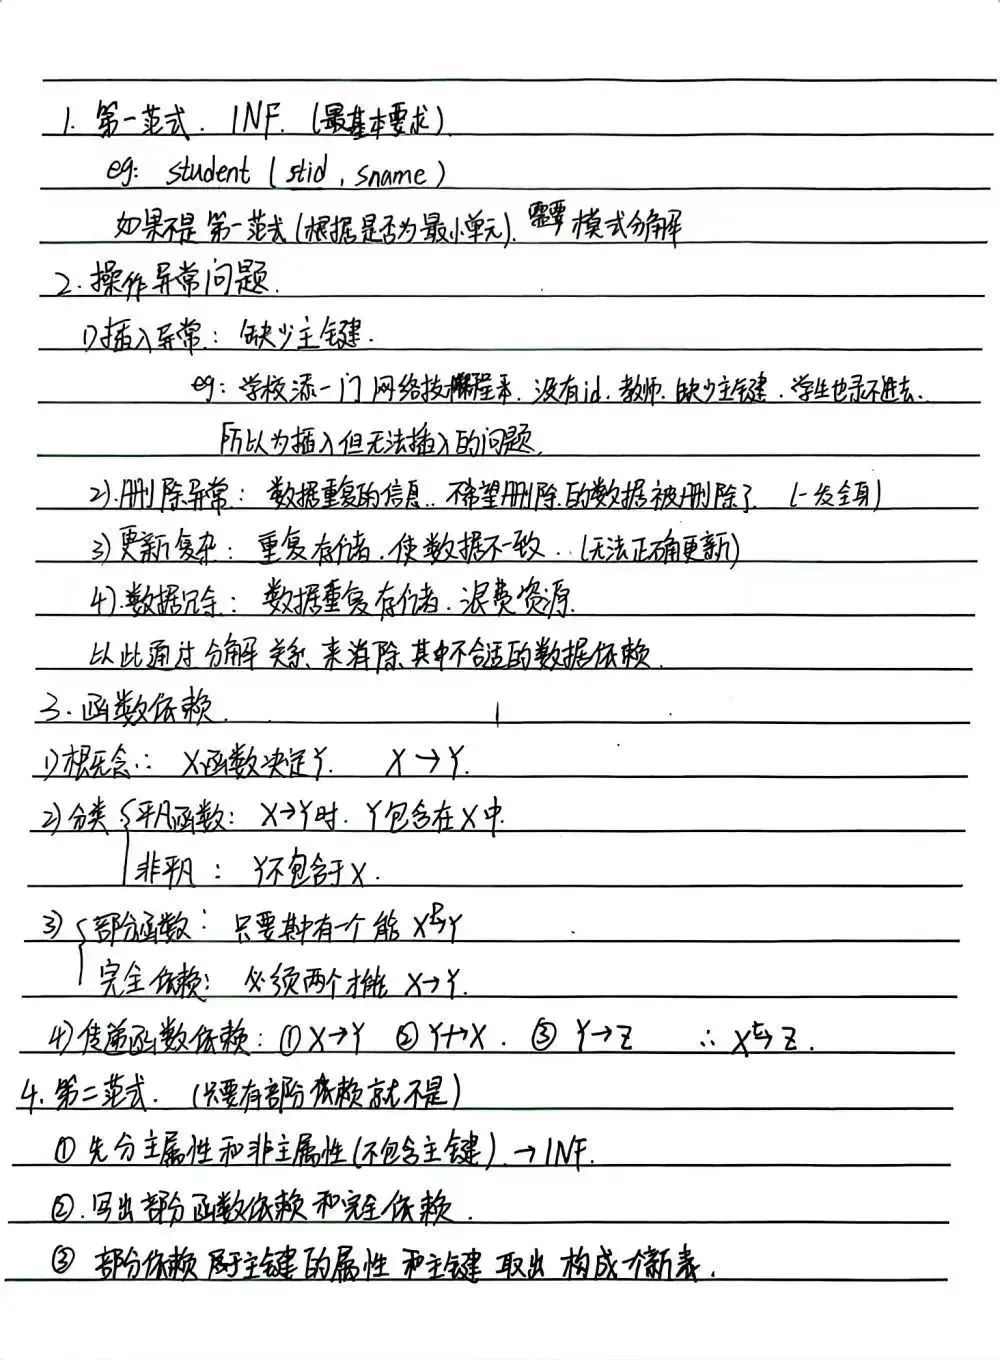 1. 第一范式. 1NF. (最基本要求).
eg: student ( stid , sname )
如果不是第一范式(根据是否为最小单元). 需要模式分解
2. 操作异常问题.
1)插入异常: 缺少主键.
eg: 学校添一门网络技术课程来. 没有id. 教师. 缺少主键. 学生也录不进去.
所以为插入但无法插入的问题.
2).删除异常: 数据重复的信息.. 不希望删除的数据被删除了. (一发全身)
3)更新复杂: 重复存储. 使数据不一致. (无法正确更新)
4).数据冗余: 数据重复存储. 浪费资源.
以此通过分解关系、来消除其中不合适的数据依赖.
3. 函数依赖.
1)概念: X函数决定Y. X→Y.
2)分类 平凡函数: X→Y时. Y包含在X中.
非平凡: Y不包含于X.
3) 部分函数: 只要其中有一个能 X P→Y
完全依赖: 必须两个才能 X→Y.
4)传递函数依赖: ①X→Y ②Y↛X. ③ Y→Z ∴ X t→Z.
4. 第二范式. (只要有部分依赖就不是)
① 先分主属性和非主属性(不包含主键). → 1NF.
②. 写出部分函数依赖和完全依赖.
③ 部分依赖属于主键的属性和主键取出构成一个新表.